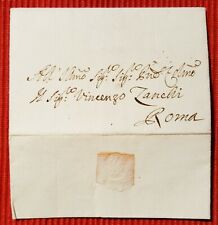 All' Illmo Sigr Sigr Pne Colmo
Il Sigr Vincenzo Zanchi
Roma